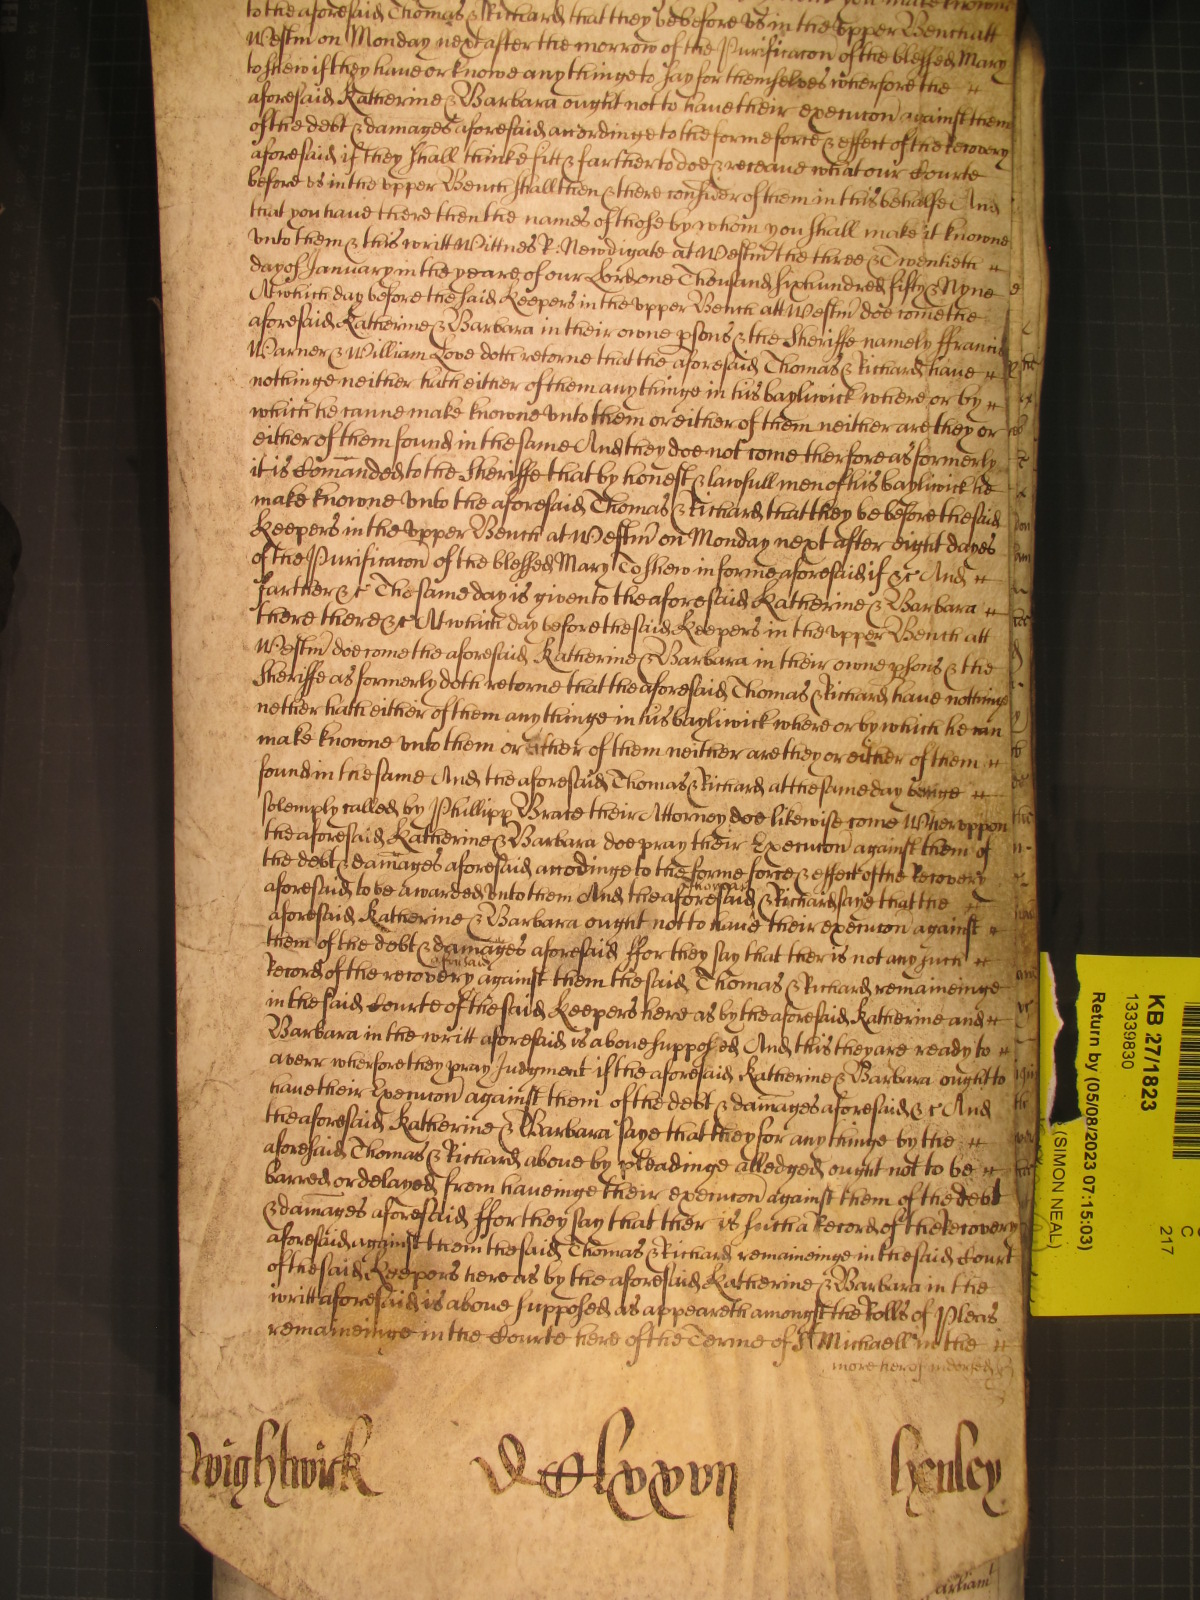 to the aforesaid Thomas & Richard that they be before vs in the vpper Bench att
Westm̃ on Monday next after the morrow of the Purificacon̄ of the blessed Mary
to shew if they haue or knowe any thinge to say for themselves wherfore the
aforesaid Katherine & Barbara ought not to haue their execucon̄ against them
of the debt & damages aforesaid accordinge to the forme force & effect of the recovery
aforesaid if they shall thinke fitt & farther to doe & receaue what our Courte
before vs in the vpper Bench shall then & there consider of them in this behalfe And
that you haue there then the names of those by whom you shall make it knowne
vnto them & this writt Wittnes R: Newdigate at Westm̃ the three & Twentieth
day of January in the yeare of our Lord one Thousand six hundred fifty & Nyne
At which day before the said Keepers in the vpper Bench att Westm̃ doe come the
aforesaid Katherine & Barbara in their owne psons & the Sheriffe namely ffrancis
Warner & William Love doth retorne that the aforesaid Thomas & Richard haue
nothinge neither hath either of them any thinge in his bayliwick where or by
which he canne make knowne vnto them or either of them neither are they or
either of them found in the same And they doe not come therfore as formerly
it is Com̄anded to the Sheriffe that by honest & lawfull men of his bayliwick he
make knowne vnto the aforesaid Thomas & Richard that they be before the said
Keepers in the vpper Bench at Westm̃ on Monday next after eight dayes
of the Purificacon̄ of the blessed Mary To shew in forme aforesaid if &c And
farther &c The same day is given to the aforesaid Katherine & Barbara
there there &c At which day before the said Keepers in the vpper Bench att
Westm̃ doe come the aforesaid Katherine & Barbara in their owne psons & the
Sheriffe as formerly doth retorne that the aforesaid Thomas & Richard haue nothinge
nether hath either of them any thinge in his bayliwick where or by which he can
make knowne vnto them or either of them neither are they or either of them
found in the same And the aforesaid Thomas & Richard at the same day beinge
solemply called by Phillipp Brace their Attorney doe likewise come Wheruppon
the aforesaid Katherine & Barbara doe pray their Execucon̄ against them of
the debt & dam̄ages aforesaid accodinge to the forme force & effect of the Recovery
aforesaid to be awarded vnto them And the aforesaid Thomas & Richard saye that the
aforesaid Katherine & Barbara ought not to haue their execucon̄ against
them of the debt & damages aforesaid ffor they say that there is not any such
Record of the recovery aforesaid against them the said Thomas & Richard remaineinge
in the said Courte of the said Keepers here as by the aforesaid Katherine and
Barbara in the writt aforesaid is aboue supposed And this they are ready to
averr wherfore they pray Judgment if the aforesaid Katherine & Barbara ought to
haue their Execucon̄ against them of the debt & dam̄ages aforesaid & c And
the aforesaid Katherine & Barbara saye that they for any thinge by the
aforesaid Thomas & Richard aboue by pleadinge alledged ought not to be
barred or delayed from haueinge their execucon̄ against them of the debt
& dam̄ages aforesaid ffor they say that ther is such a Record of the Recovery
aforesaid against them the said Thomas & Richard remaineinge in the said Court
of the said Keepers here as by the aforesaid Katherine & Barbara in the
writt aforesaid is aboue supposed as appeareth amongst the Rolls of Pleas
remaineinge in the Courte here of the Terme of St Michaell in the
more herof indorsed
Wightwick
Henley
KB 27/1823
13339830
Return by (05/08/2023 07:15:03)
(SIMON NEAL)
217